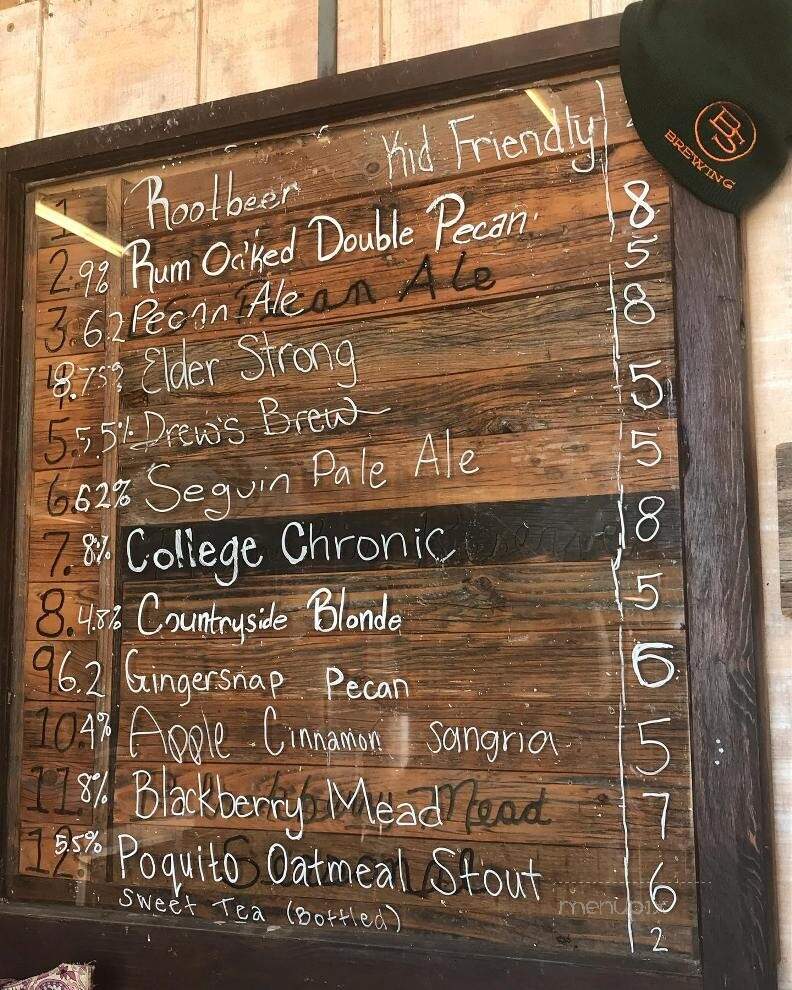 BS
BREWING
1 Rootbeer Kid Friendly
2. 9% Rum Oaked Double Pecan. 8
3. 6.2 Pecan Ale 5
8.75% Elder Strong 8
5. 5.5% Drew's Brew 5
6. 6.2% Seguin Pale Ale 5
7. 8% College Chronic 8
8. 4.8% Countryside Blonde 5
9 6.2 Gingersnap Pecan 6
10. 4% Apple Cinnamon Sangria 5
11. 8% Blackberry Mead 7
12. 5.5% Poquito Oatmeal Stout 6
Sweet Tea (Bottled) 2
menupix